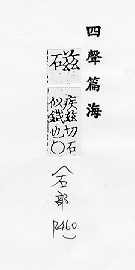 四聲篇海
礠
疾兹切石
似鐵也〇
（石部
P460）